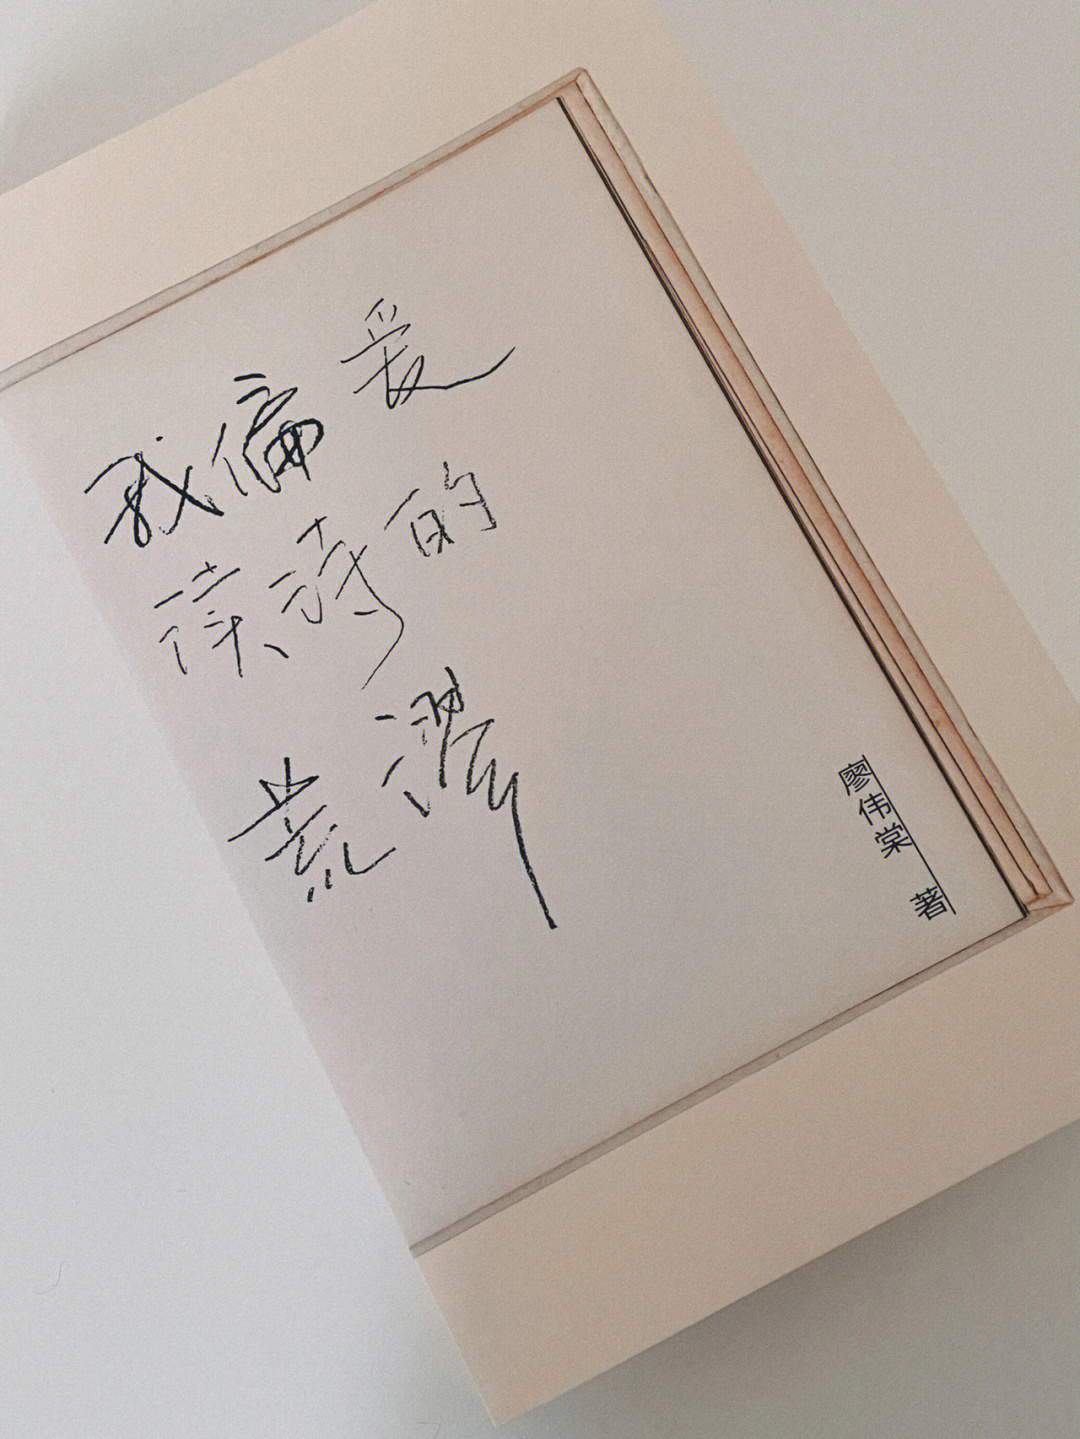 我偏爱
读诗的
荒谬
廖伟棠 著